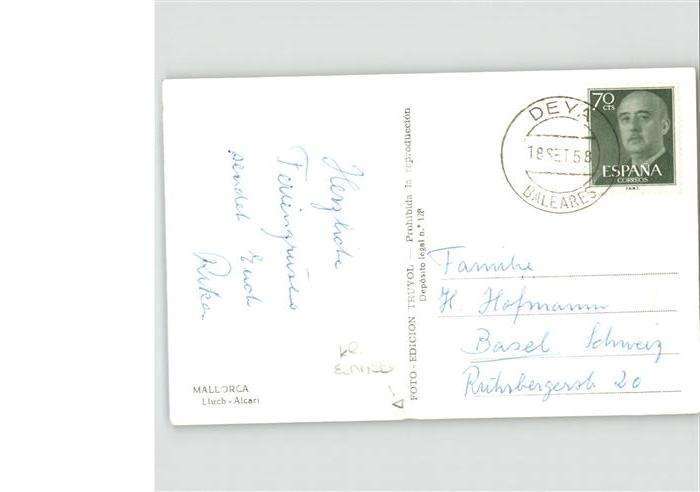 Herzliche
Feriengrüsse
sendet Euch
MALLORCA
Lluch - Alcari
FOTO - EDICION TRUYOL. — Prohibida la reproducción
Depósito legal n.° 128
DEYA
18 SET 58
BALEARES
70 CTS
ESPAÑA
CORREOS
Familie
H. Hofmann
Basel Schweiz
20